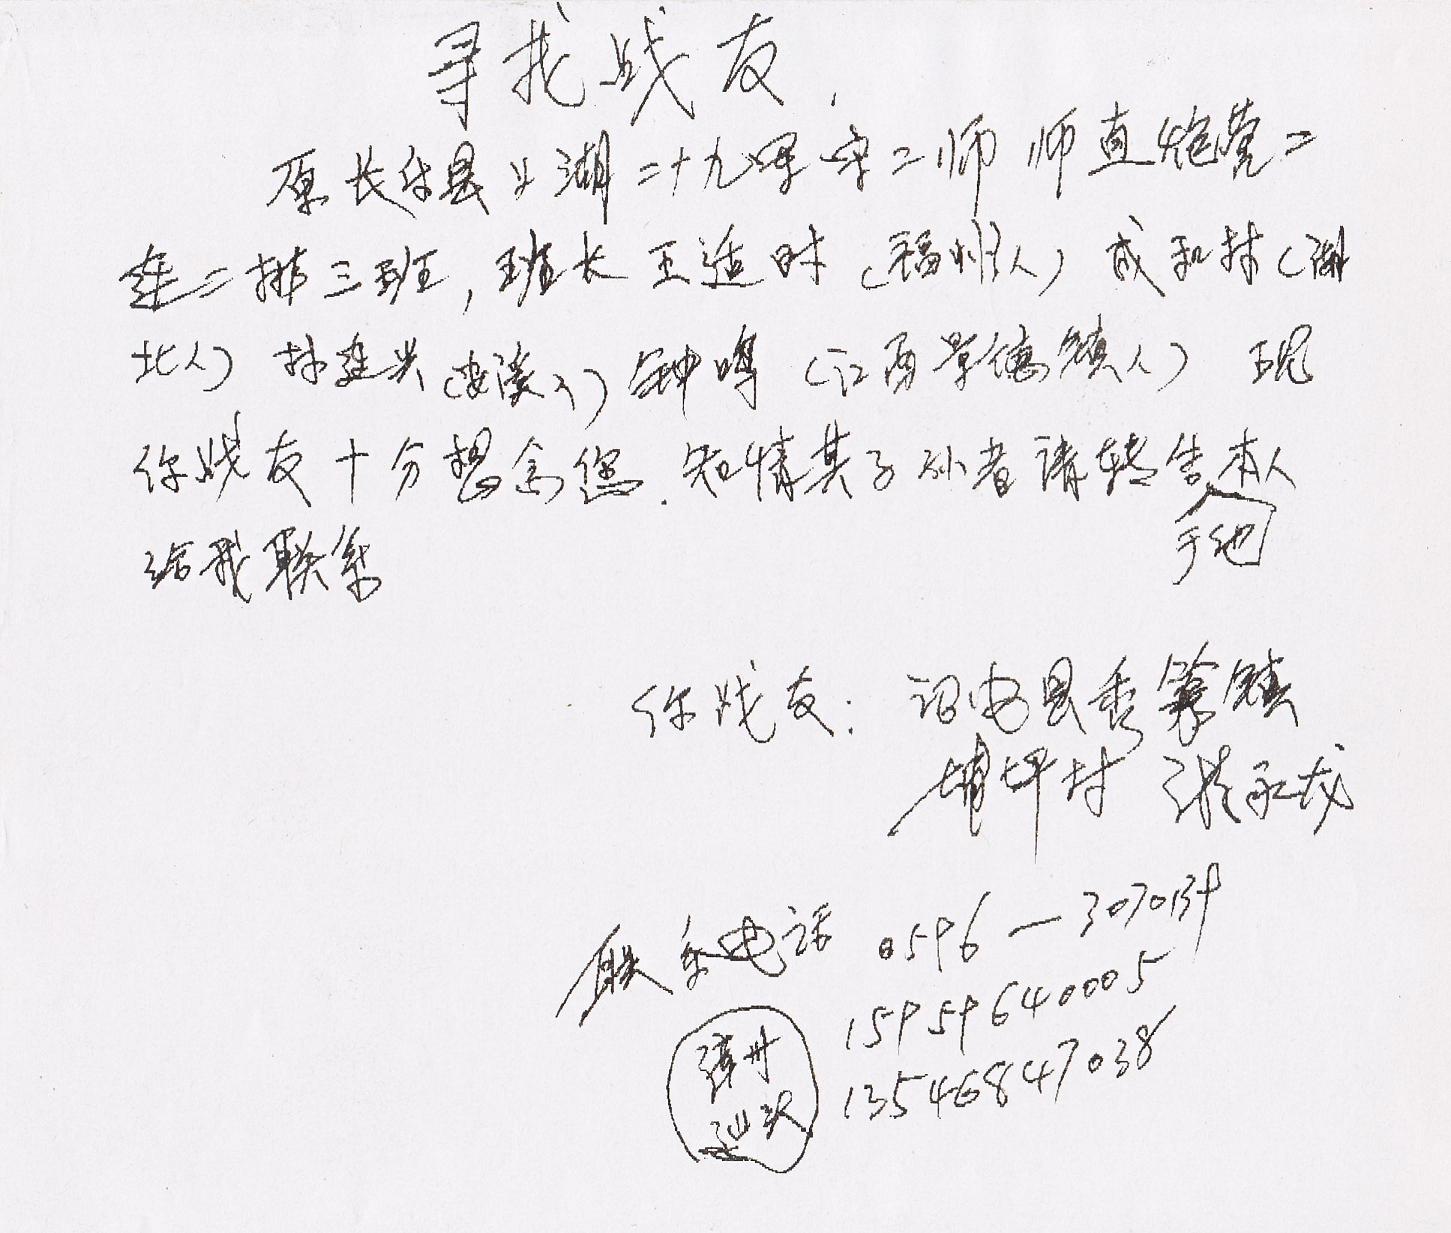 寻找战友.
原长乐县上湖二十九军守二师 师直炮营二
连二排三班,班长 王适时 (福州人) 成和林(湖
北人) 林连兴(安溪人) 钟鸣 (江西景德镇人) 现
你战友十分想念您.知情其子孙者请转告本人
于他
给我联系
你战友: 诏安县秀篆镇
埔坪村 张永龙
联系电话 0596-3070139
15959640005
漳州 13546847038
汕头